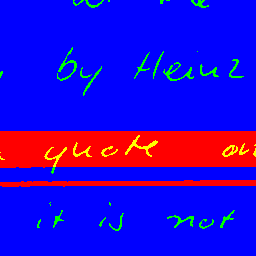 by Heinz
quote
it is not